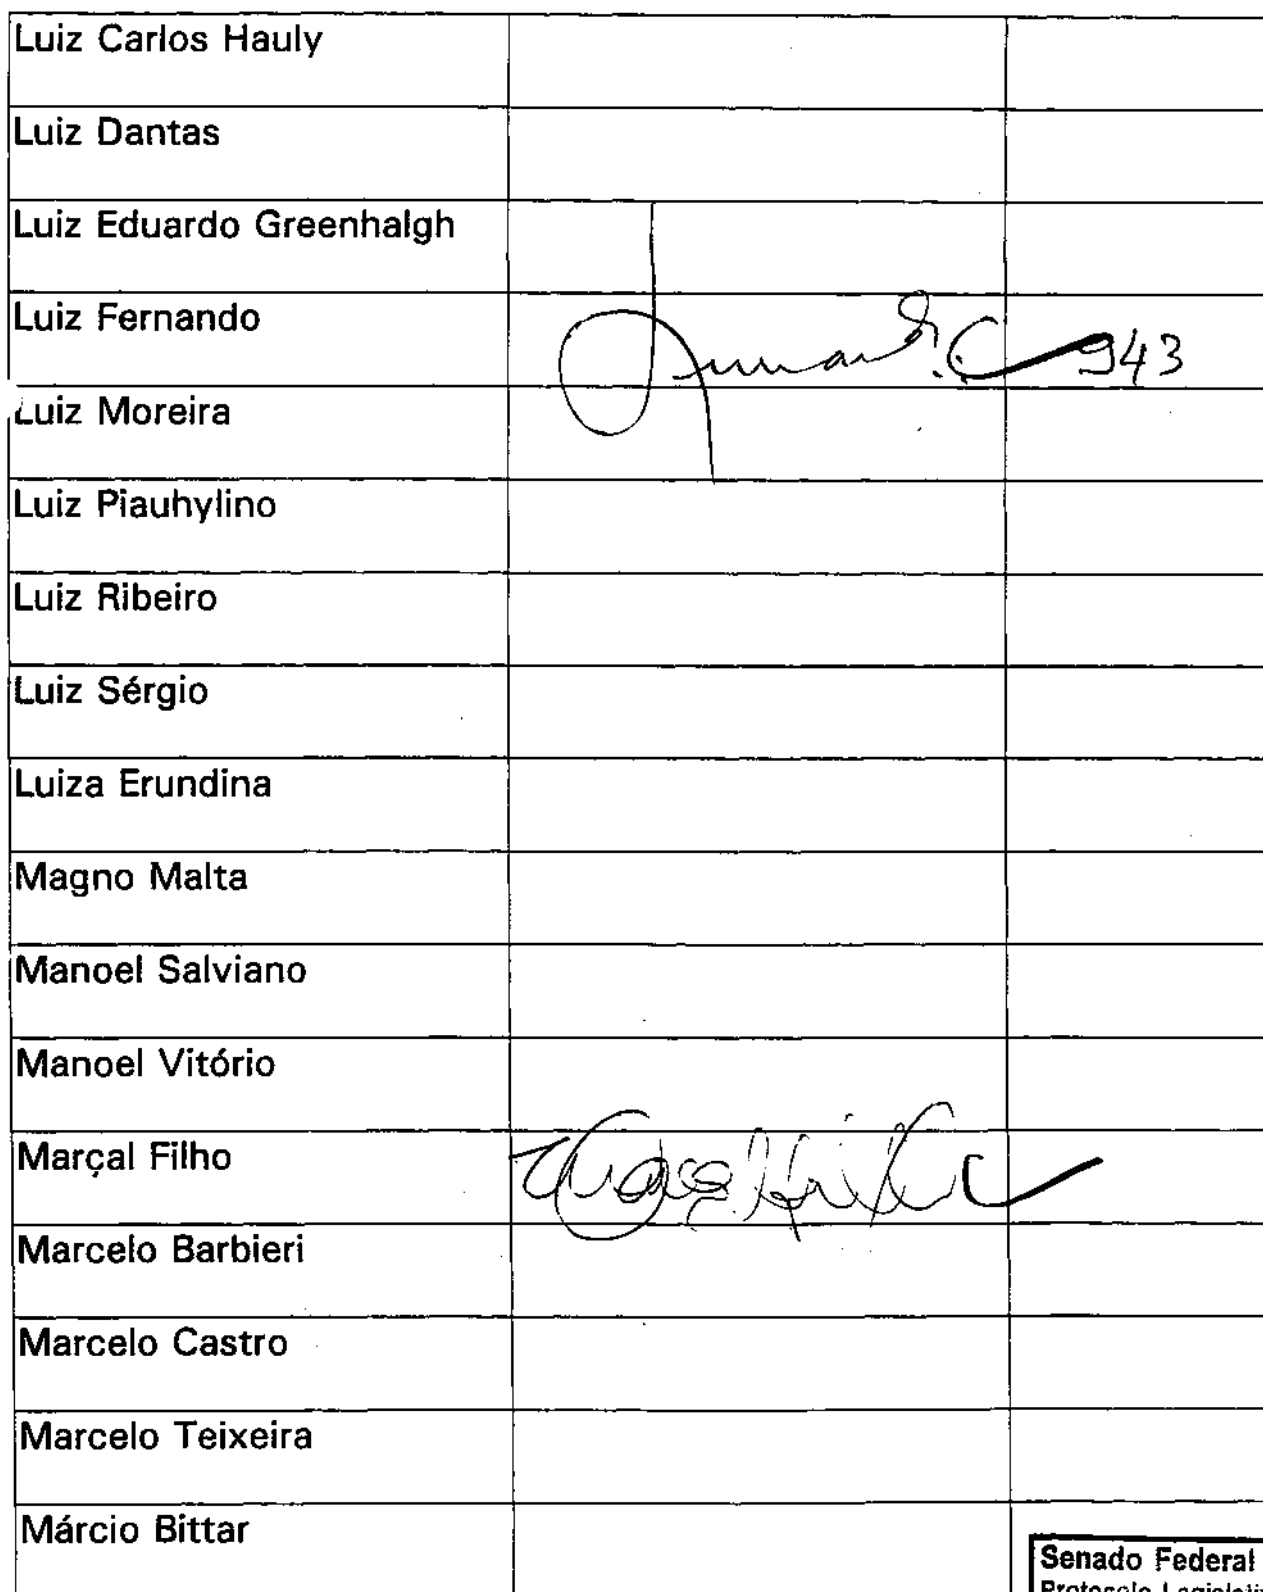 Luiz Carlos Hauly
Luiz Dantas
Luiz Eduardo Greenhalgh
Luiz Fernando 943
Luiz Moreira
Luiz Piauhylino
Luiz Ribeiro
Luiz Sérgio
Luiza Erundina
Magno Malta
Manoel Salviano
Manoel Vitório
Marçal Filho
Marcelo Barbieri
Marcelo Castro
Marcelo Teixeira
Márcio Bittar
Senado Federal